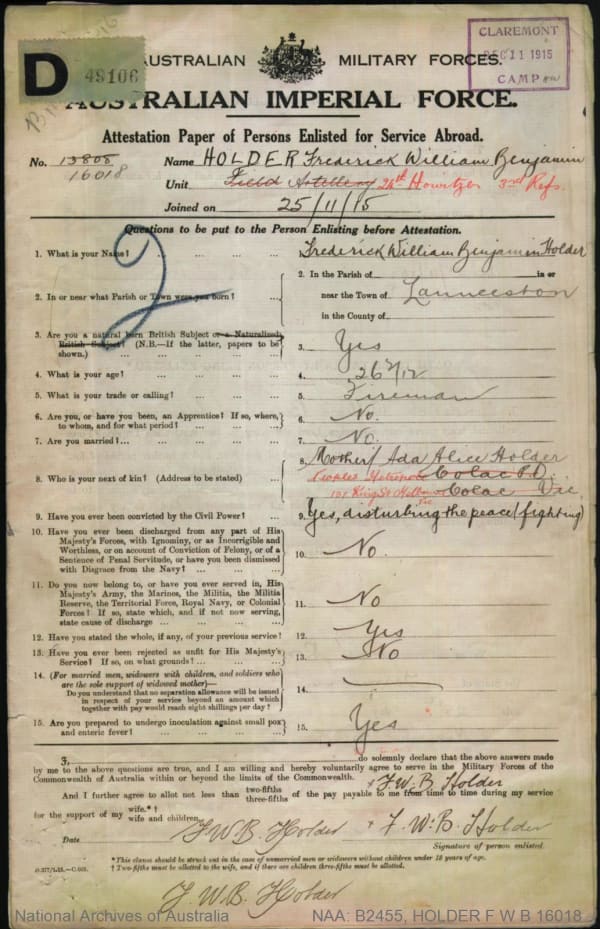 D 49106
AUSTRALIAN MILITARY FORCES.
CLAREMONT
DEC 11 1915
CAMP
AUSTRALIAN IMPERIAL FORCE.
Attestation Paper of Persons Enlisted for Service Abroad.
No. 13808 Name HOLDER Frederick William Benjamin
16018
Unit Field Artillery 24th Howitzer 3rd Refs.
Joined on 25/11/15
Questions to be put to the Person Enlisting before Attestation.
1. What is your Name? ... ... ... Frederick William Benjamin Holder
2. In or near what Parish or Town were you born? ...
2. In the Parish of in or
near the Town of Launceston
in the County of
2
3. Are you a natural born British Subject or a Naturalized
British Subject? (N.B.—If the latter, papers to be
shown.) ... ... ... ... ...
3. Yes
4. What is your age? ... ... ... ... 4. 26 2/12
5. What is your trade or calling? ... ... ... 5. Fireman
6. Are you, or have you been, an Apprentice? If so, where,
to whom, and for what period? ... ... ...
6. No.
7. Are you married?... ... ... ... ... 7. No.
8. Who is your next of kin? (Address to be stated) ...
8. Mother/ Ada Alice Holder
Colac P.O.
Colac Vic
9. Have you ever been convicted by the Civil Power? ... 9. Yes, disturbing the peace (fighting)
10. Have you ever been discharged from any part of His
Majesty's Forces, with Ignominy, or as Incorrigible and
Worthless, or on account of Conviction of Felony, or of a
Sentence of Penal Servitude, or have you been dismissed
with Disgrace from the Navy? ... ... ...
10. No.
11. Do you now belong to, or have you ever served in, His
Majesty's Army, the Marines, the Militia, the Militia
Reserve, the Territorial Force, Royal Navy, or Colonial
Forces? If so, state which, and if not now serving,
state cause of discharge ... ... ... ...
11. No
12. Have you stated the whole, if any, of your previous service? 12. Yes
13. Have you ever been rejected as unfit for His Majesty's
Service? If so, on what grounds? ... ... ...
13. No
14. (For married men, widowers with children, and soldiers who
are the sole support of widowed mother)—
Do you understand that no separation allowance will be issued
in respect of your service beyond an amount which
together with pay would reach eight shillings per day?
14.
15. Are you prepared to undergo inoculation against small pox
and enteric fever? ... ... ... ...
15. Yes
I, do solemnly declare that the above answers made
by me to the above questions are true, and I am willing and hereby voluntarily agree to serve in the Military Forces of the
Commonwealth of Australia within or beyond the limits of the Commonwealth.
F.W.B. Holder
And I further agree to allot not less than two-fifths three-fifths of the pay payable to me from time to time during my service
for the support of my wife.*† wife and children
Date F.W.B. Holder F.W.B. Holder
Signature of person enlisted.
*This clause should be struck out in the case of unmarried men or widowers without children under 18 years of age.
† Two-fifths must be allotted to the wife, and if there are children three-fifths must be allotted.
F.W.B. Holder
National Archives of Australia NAA: B2455, HOLDER F W B 16018